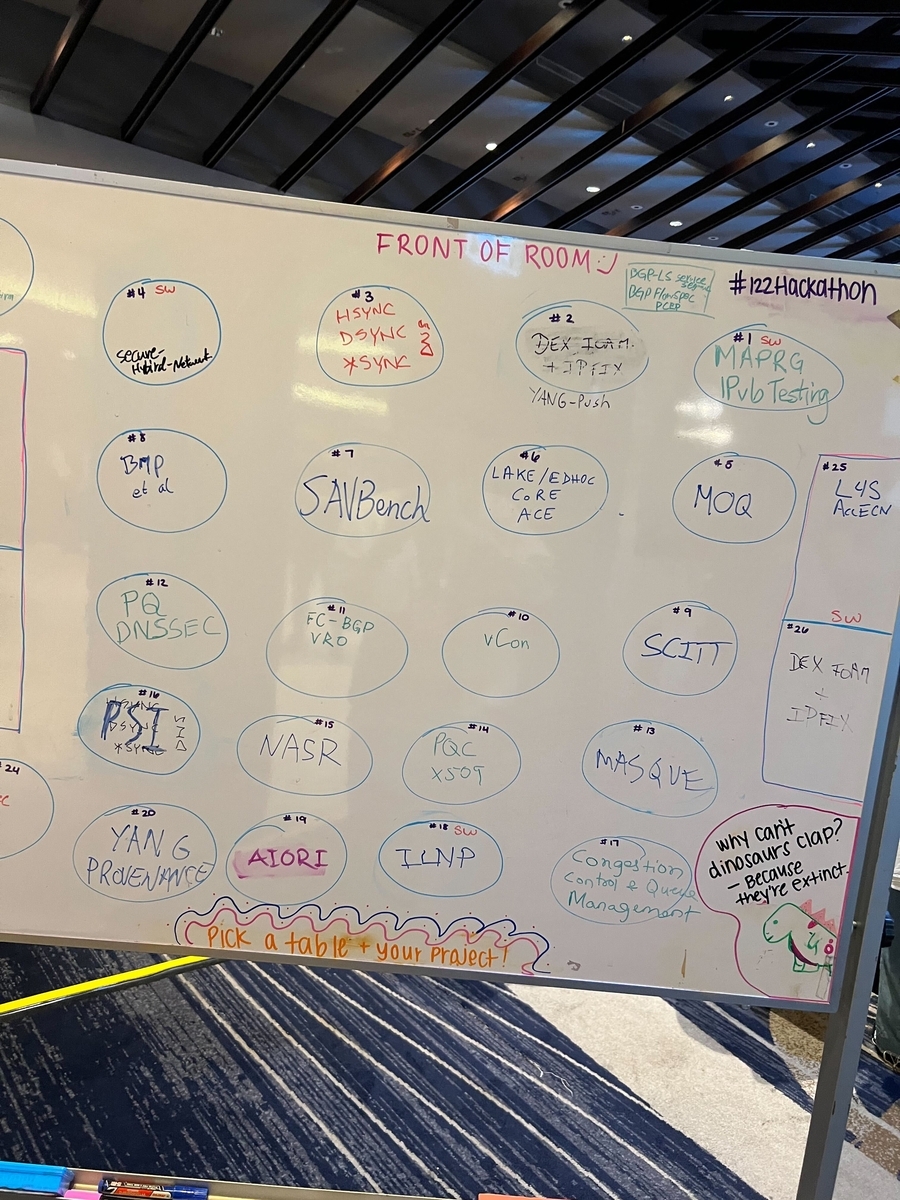 FRONT OF ROOM :)
BGP-LS service
BGP Flowspec
PCEP
#122Hackathon
#4 SW
Secure-
Hybrid-Network
#3
HSYNC
DSYNC
*SYNC
#2
DEX IOAM
+ IPFIX
YANG-Push
#1 SW
MAPRG
IPv6 Testing
#8
BMP
et al
#7
SAVBench
#6
LAKE/EDHOC
CoRE
ACE
#5
MOQ
#25
L4S
AccECN
SW
#12
PQ
DNSSEC
#11
FC-BGP
VRO
#10
vCon
#9
SCITT
#26
DEX IOAM
+
IPFIX
#16
PSI
DSYNC
*SYNC
#15
NASR
#14
PQC
X509
#13
MASQUE
#24
#20
YANG
PROVENANCE
#19
AIORI
#18 SW
ILNP
#17
Congestion
Control & Queue
Management
why can't
dinosaurs clap?
- Because
they're extinct.
Pick a table + your project!